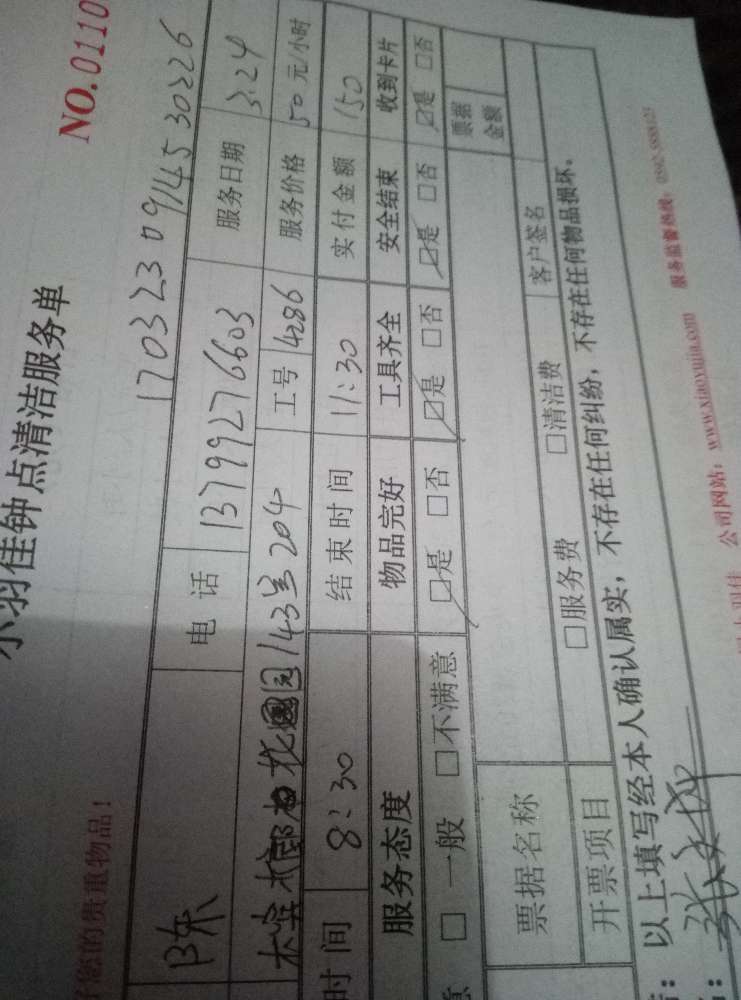 小羽佳钟点清洁服务单
NO.0110
好您的贵重物品!
17032309145 30226
陈 电话 13799276603 服务日期 3.24
花园143号204 工号 4286 服务价格 50元/小时
时间 8:30 结束时间 11:30 实付金额 150
服务态度 物品完好 工具齐全 安全结束 收到卡片
意 □一般 □不满意 ☑是 □否 ☑是 □否 ☑是 □否 ☑是 □否
票据名称 票据金额
开票项目 □服务费 □清洁费 客户签名
以上填写经本人确认属实,不存在任何纠纷,不存在任何物品损坏。
公司网站:www.xiaoyujia.com 服务监督热线:0592-5888123